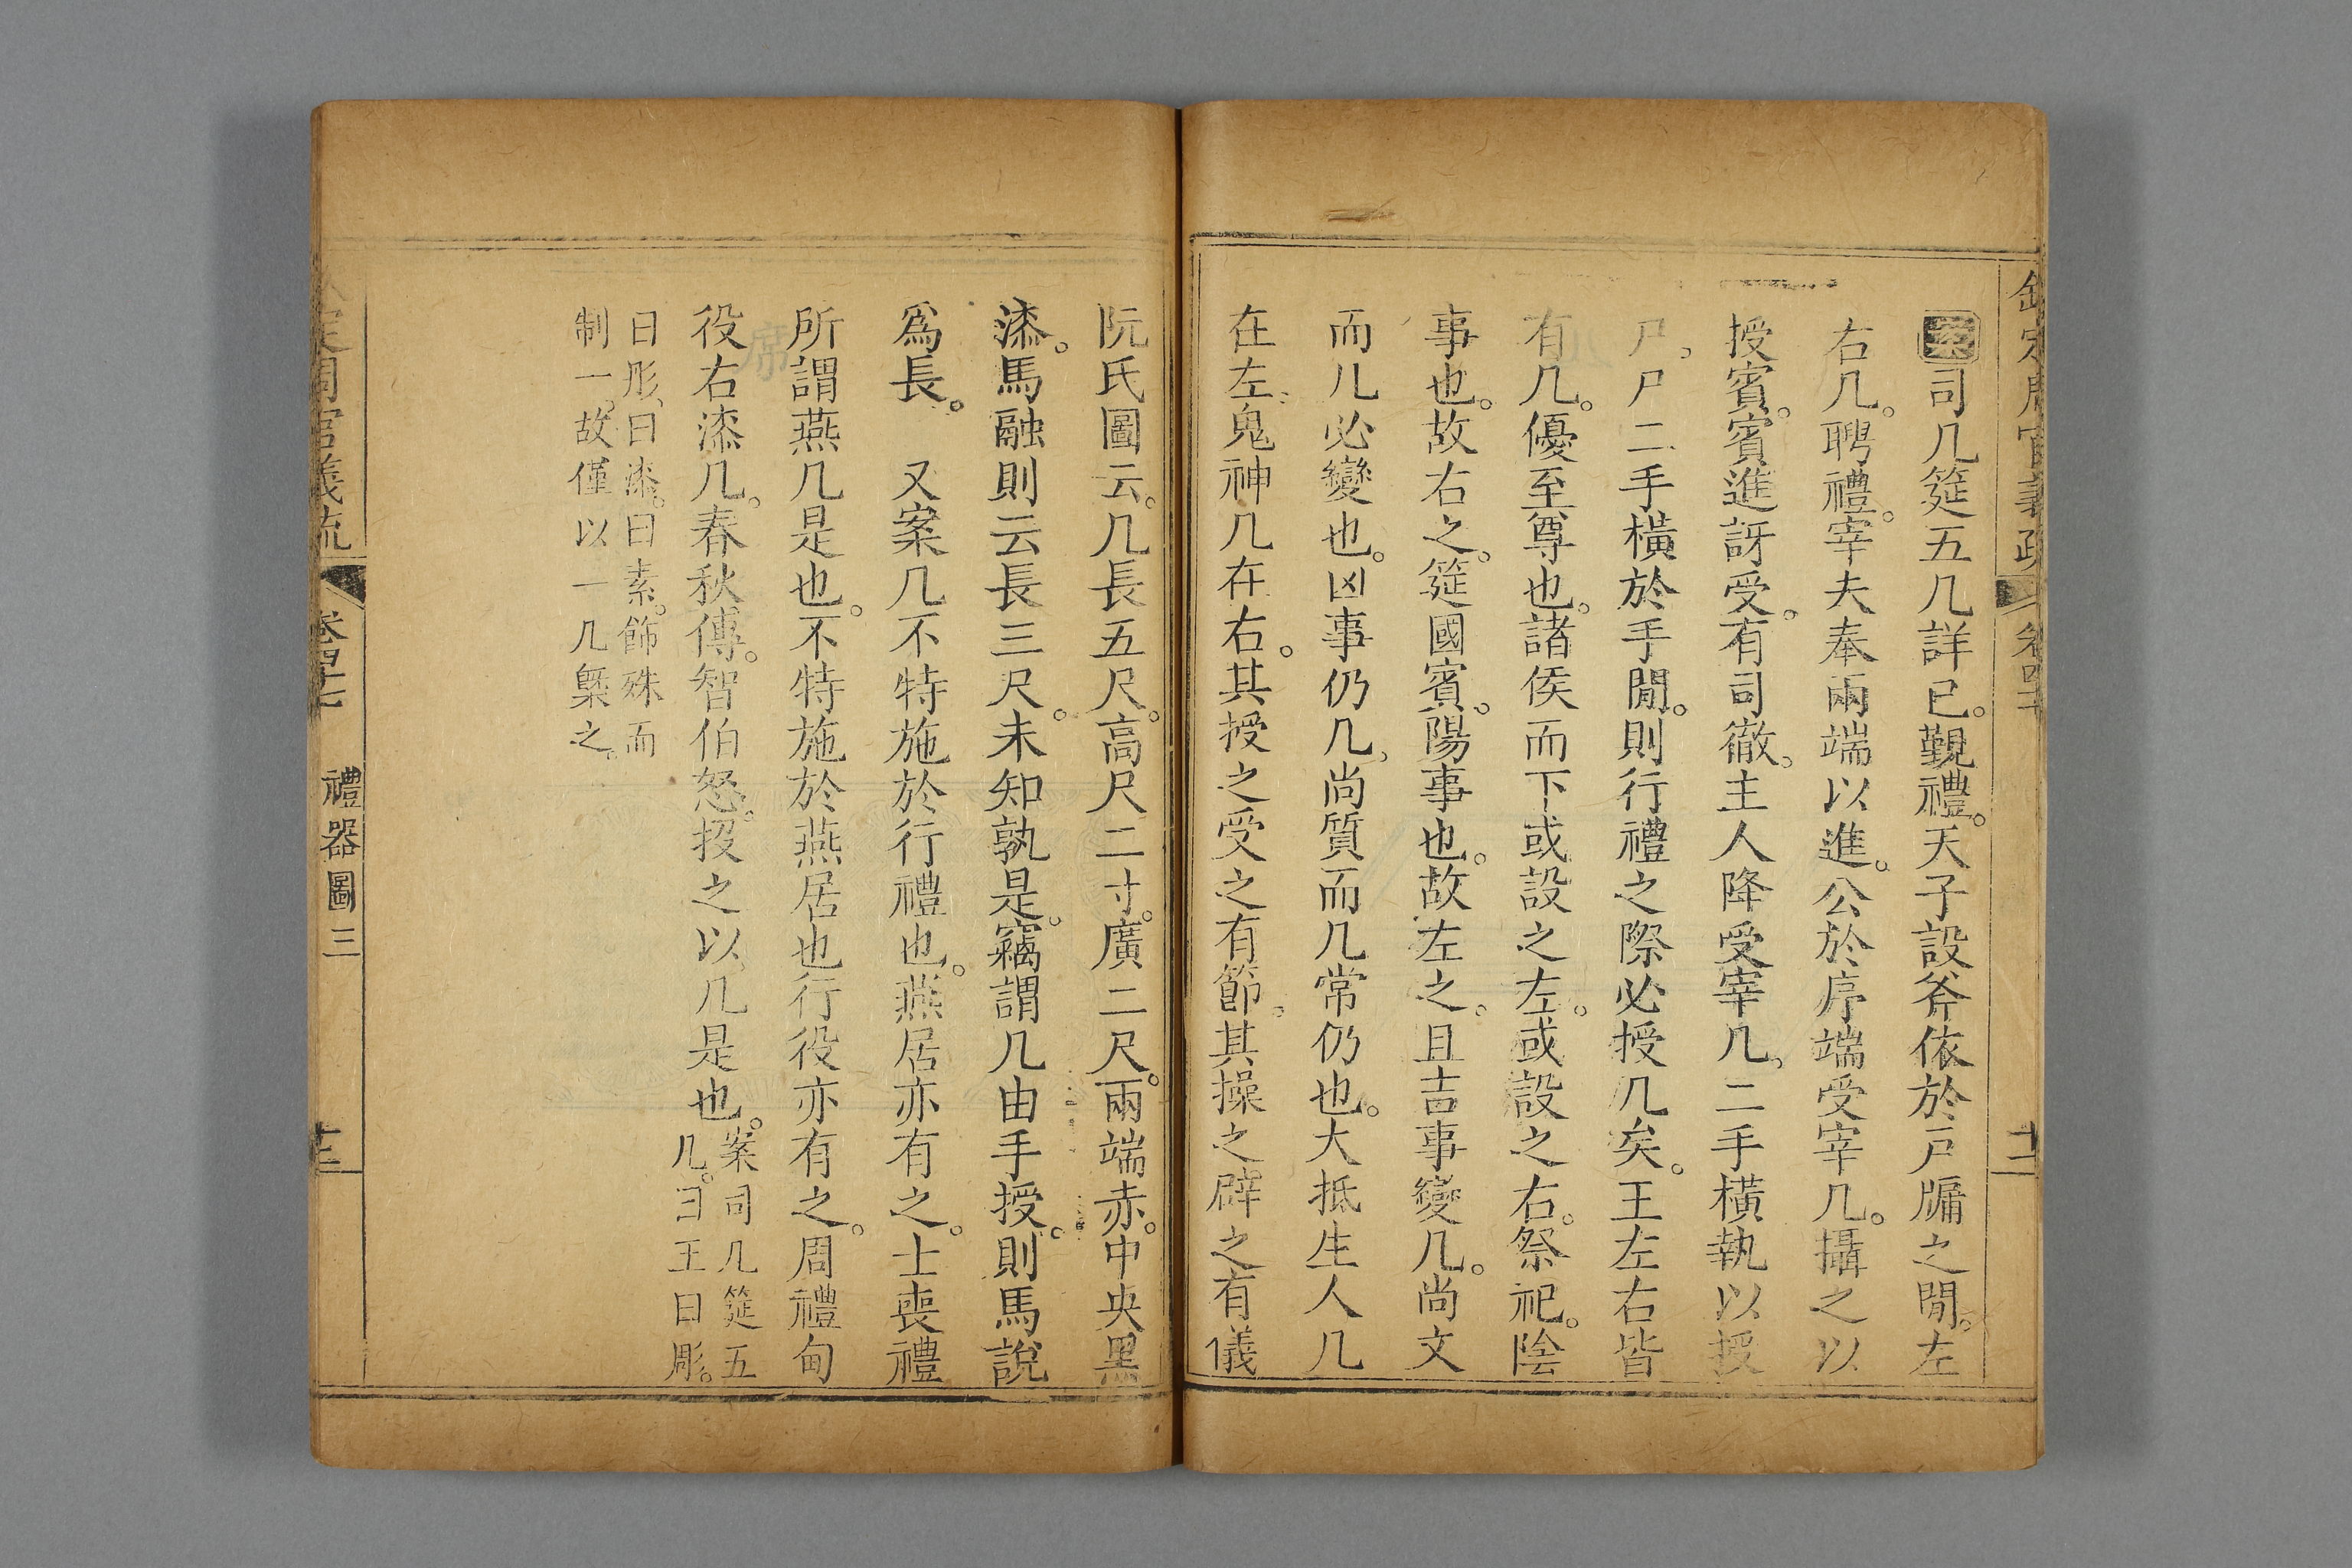 欽定周官義疏 卷四十 十二
案司几筵五几詳已。覲禮。天子設斧依於戸牖之閒。左
右几。聘禮。宰夫奉兩端以進。公於序端受宰几。攝之以
授賓。賓進訝受。有司徹。主人降受宰几。二手橫執以授
尸。尸二手橫於手閒。則行禮之際必授几矣。王左右皆
有几。優至尊也。諸侯而下或設之左。或設之右。祭祀。陰
事也。故右之。筵國賓。陽事也。故左之。且吉事變几。尚文
而几必變也。凶事仍几。尚質而几常仍也。大抵生人几
在左。鬼神几在右。其授之受之有節。其操之辟之有儀
阮氏圖云。几長五尺。高尺二寸。廣二尺。兩端赤。中央黑
漆。馬融則云長三尺。未知孰是。竊謂几由手授。則馬說
爲長。 又案几不特施於行禮也。燕居亦有之。士喪禮
所謂燕几是也。不特施於燕居也行役亦有之。周禮甸
役右漆几。春秋傳。智伯怒。投之以几是也。案司几筵五
几。曰玉曰彫。
曰彤。曰漆。曰素。飾殊而
制一。故僅以一几槩之。
欽定周官義疏 卷四十七 禮器圖三 十三